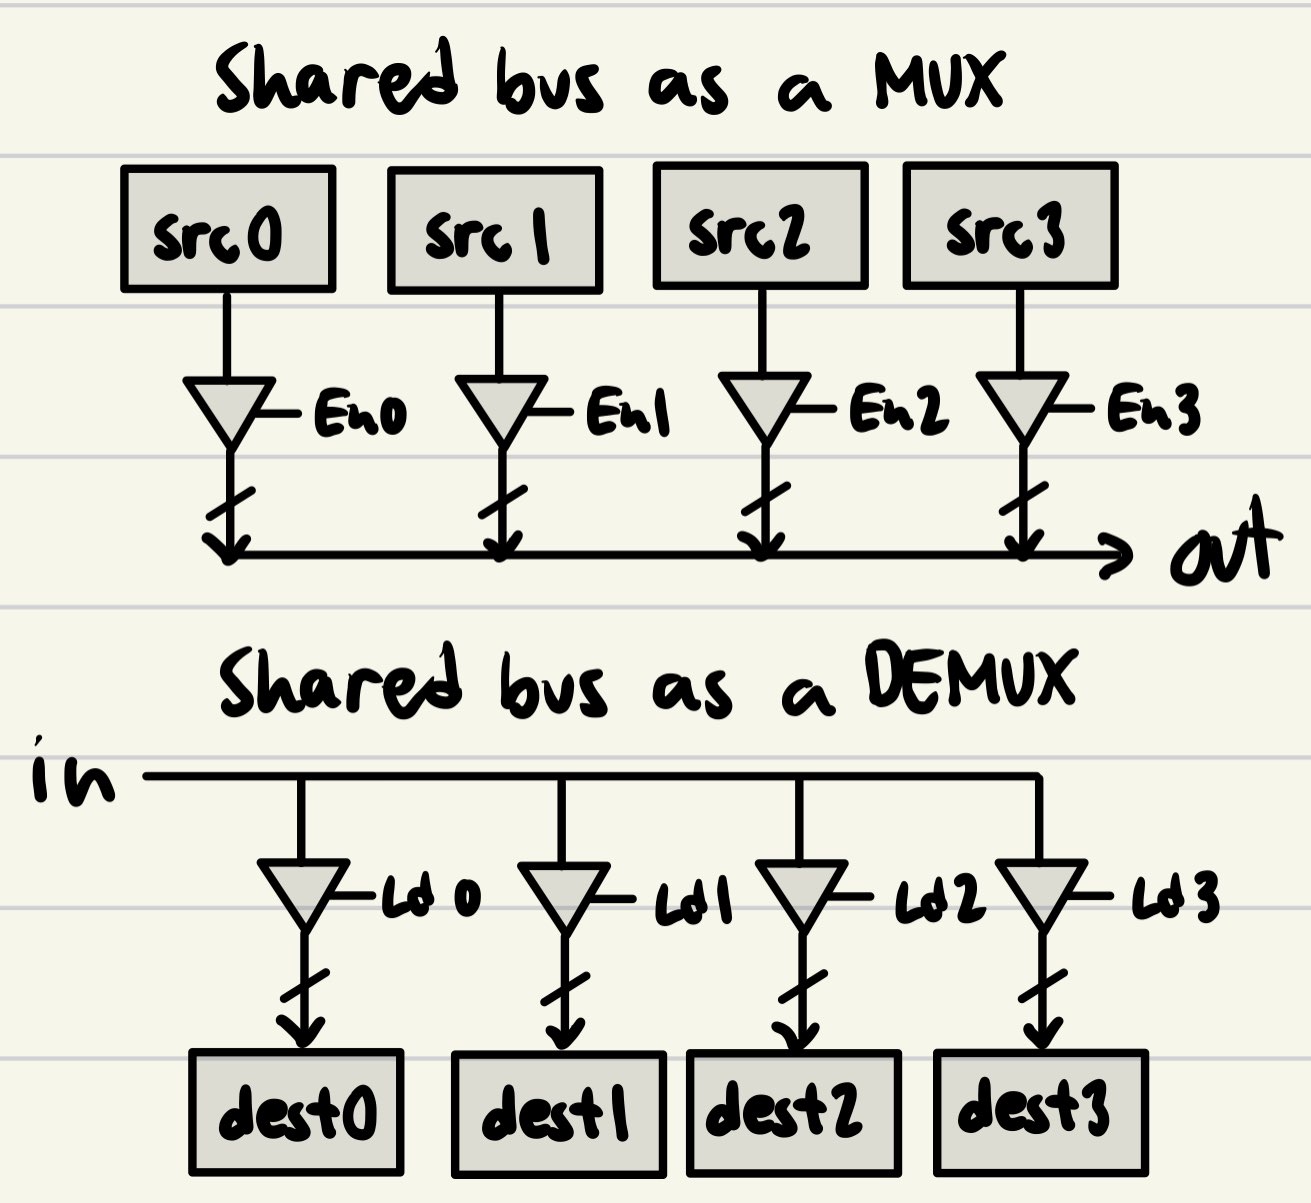 Shared bus as a MUX
src0 src1 src2 src3
En0 En1 En2 En3
out
Shared bus as a DEMUX
in
Ld0 Ld1 Ld2 Ld3
dest0 dest1 dest2 dest3